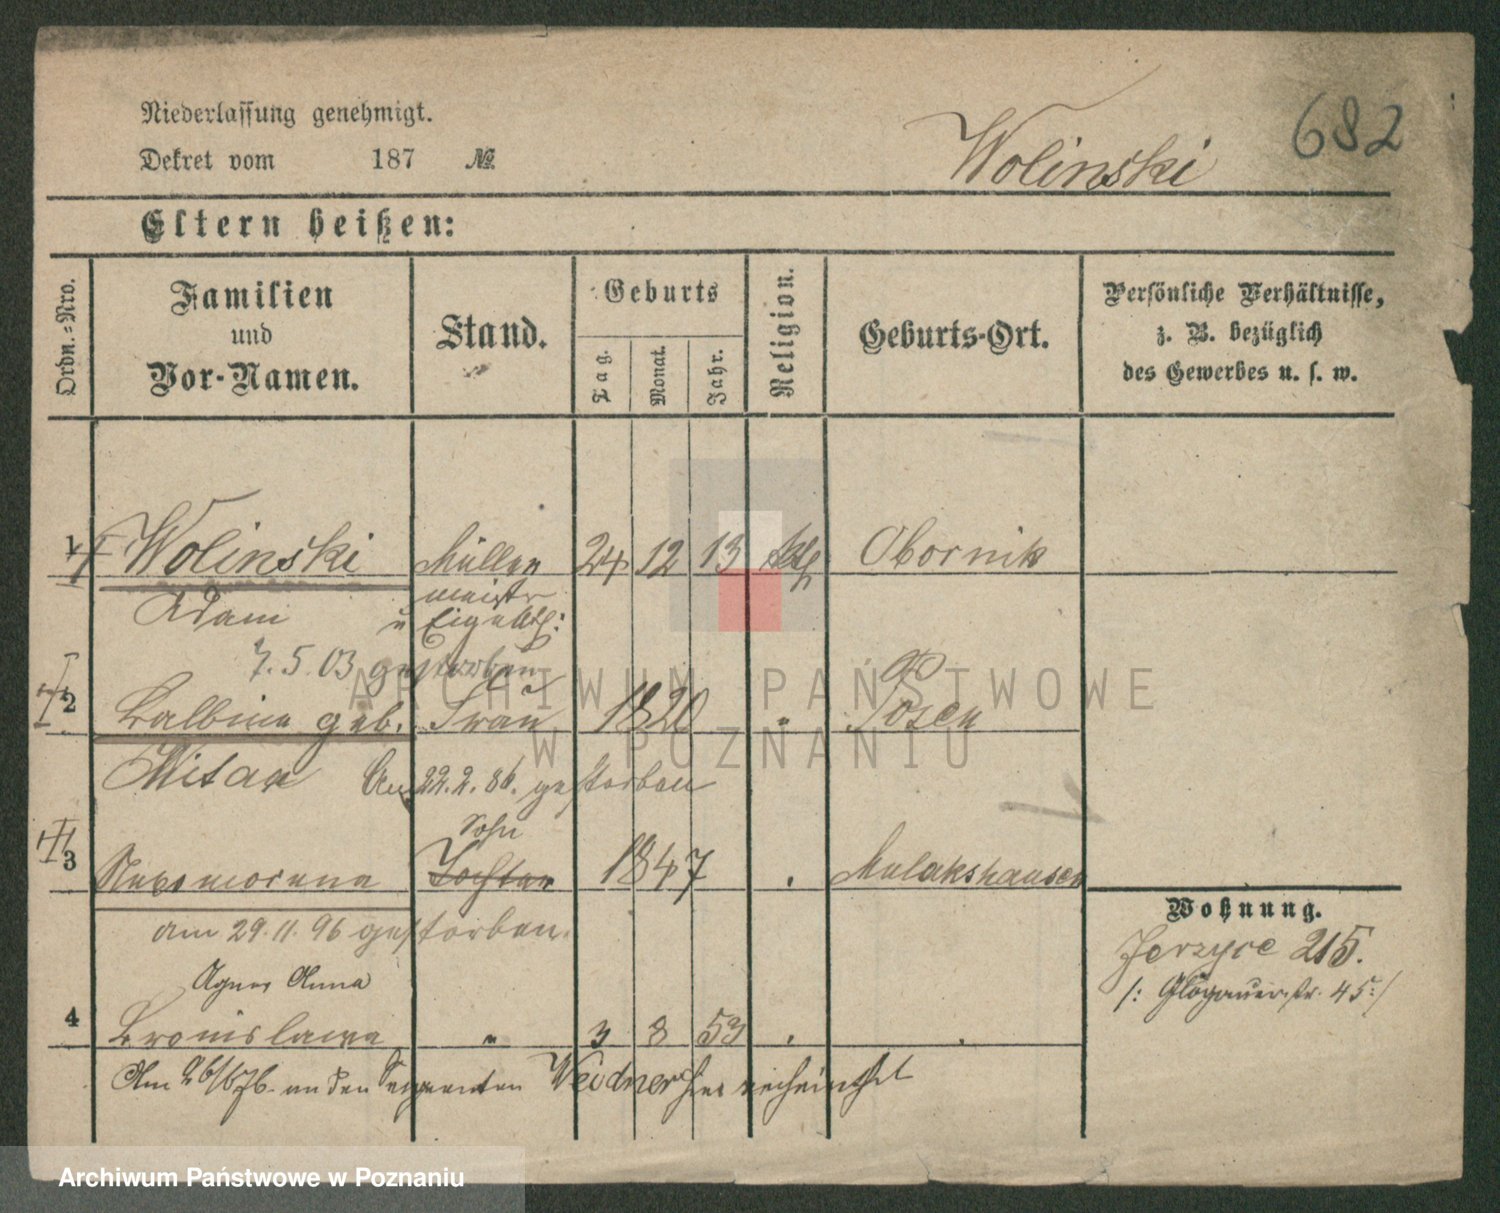 Niederlassung genehmigt.
Dekret vom 187 №
Wolinski
682
Eltern heißen:
Ordn.-Nro.
Familien
und
Vor-Namen.
Stand.
Geburts
Tag.
Monat.
Jahr.
Religion.
Geburts-Ort.
Persönliche Verhältnisse,
z. B. bezüglich
des Gewerbes u. s. w.
1 Wolinski Müller 24 12 13 kath Obornik
Adam meister
u Eigenth:
7. 5. 03 gestorben
2 Balbina geb. Frau 1820 " Posen
Mitax Am 22.2.86. gestorben
Sohn
3 Nepomocena Tochter 1847 " Mulakshausen
am 29.11.96 gestorben.
Wohnung.
Jerzyce 215.
/: Glogauerstr. 45 :/
Agnes Anna
4 Bronislawa " 3 8 53 " "
Am 26/6 76. an den Sergeanten Weidner hier verheirathet
ARCHIWUM PAŃSTWOWE
W POZNANIU
Archiwum Państwowe w Poznaniu